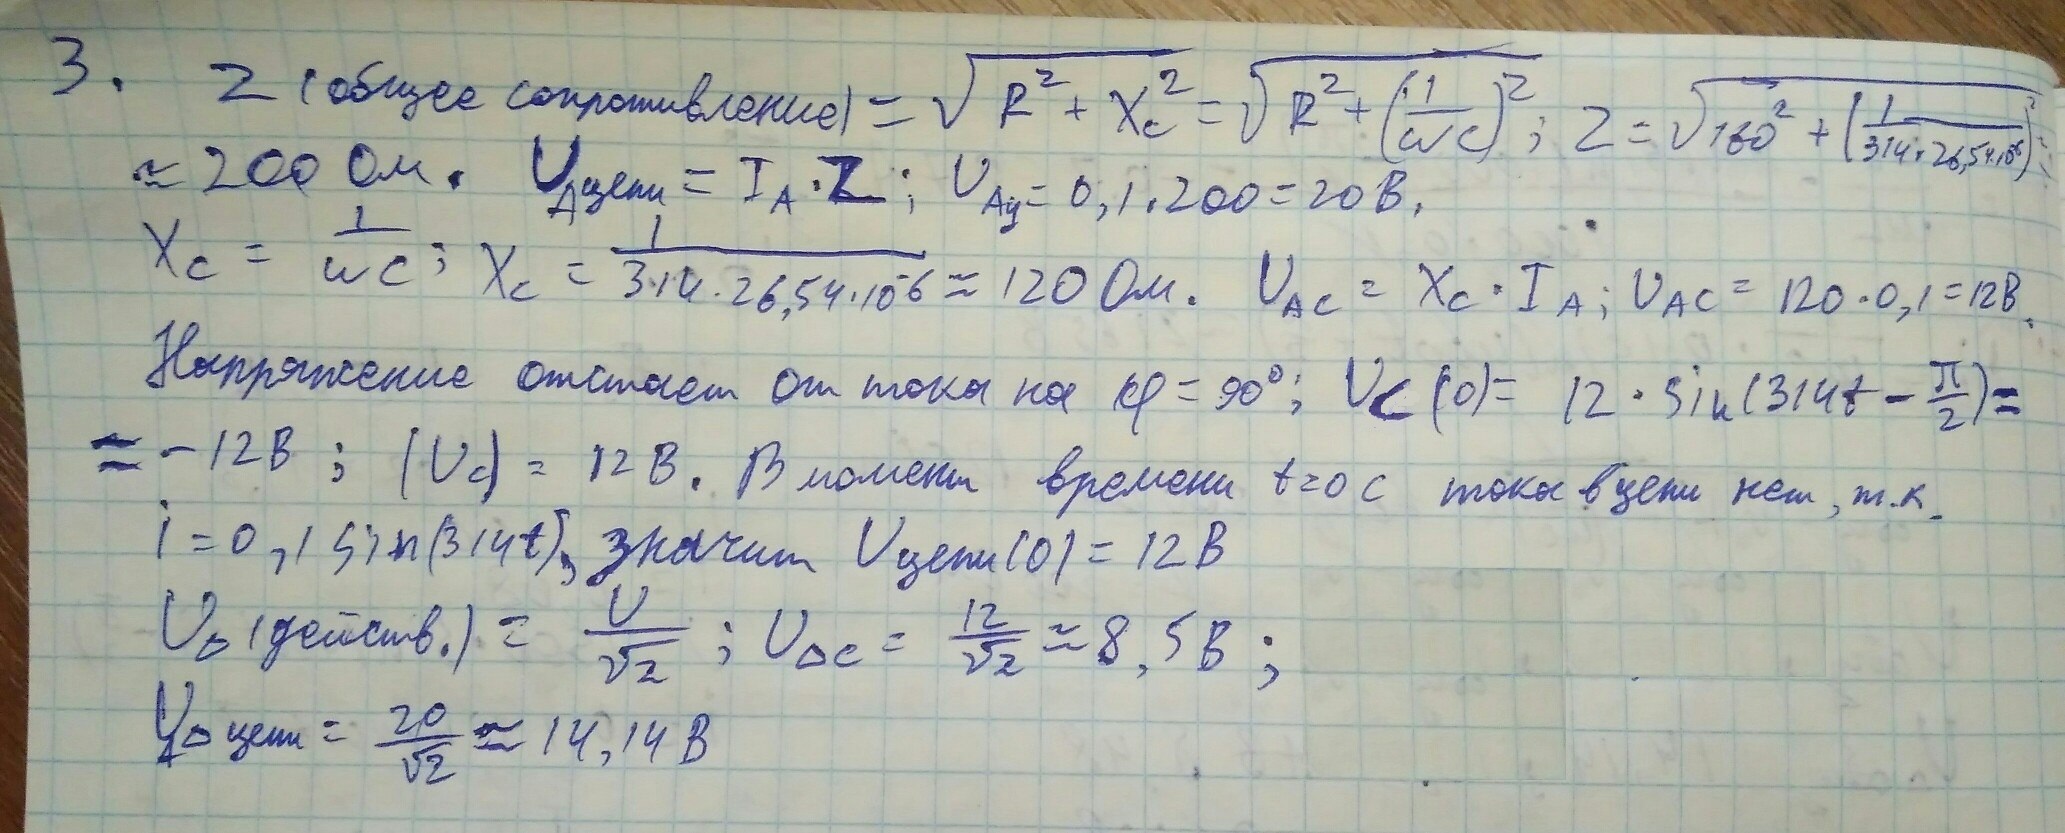 3. Z (общее сопротивление) = √(R² + Xc²) = √(R² + (1/ωC)²); Z = √(160² + (1/314·26,54·10⁻⁶)²) =
≈ 200 Ом. U_Aцепи = I_A · Z; U_Aц = 0,1·200 = 20 В.
Xc = 1/ωC; Xc = 1/3·14·26,54·10⁻⁶ ≈ 120 Ом. U_AC = Xc · I_A; U_AC = 120·0,1 = 12 В.
Напряжение отстает от тока на φ = 90°; Uc(0) = 12 · sin(314t − π/2) =
≈ −12 В; |Uc| = 12 В. В момент времени t=0 с тока в цепи нет, т.к.
i = 0,1 sin(314t), значит Uцепи(0) = 12 В
U_D (действ.) = U/√2; U_DC = 12/√2 ≈ 8,5 В;
U_D цепи = 20/√2 ≈ 14,14 В